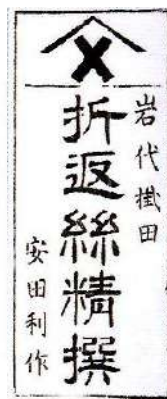 岩代掛田
折返絲精撰
安田利作